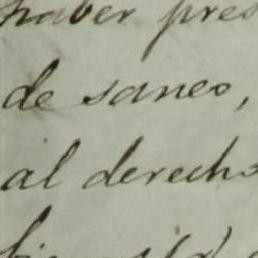 haber pres
de saneo,
al derecho